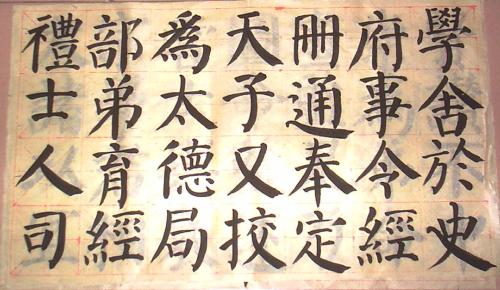 學舍於史
府事令經
冊通奉定
天子又挍
爲太德局
部弟育經
禮士人司